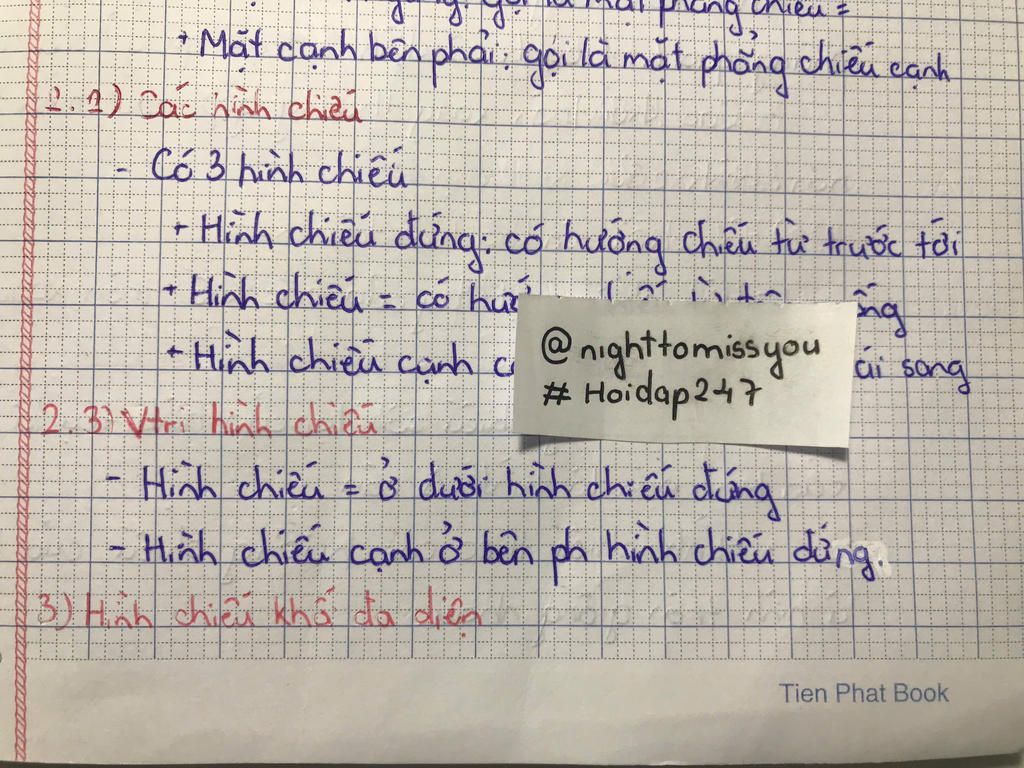 gọi là mặt phẳng chiếu =
+ Mặt cạnh bên phải: gọi là mặt phẳng chiếu cạnh
2.1) Các hình chiếu
- Có 3 hình chiếu
+ Hình chiếu đứng: có hướng chiếu từ trước tới
+ Hình chiếu = có
+ Hình chiếu cạnh
ái sang
@nighttomissyou
# Hoidap247
2.3) Vtri hình chiếu
- Hình chiếu = ở dưới hình chiếu đứng
- Hình chiếu cạnh ở bên ph hình chiếu đứng.
3) Hình chiếu khố đa diện
Tien Phat Book